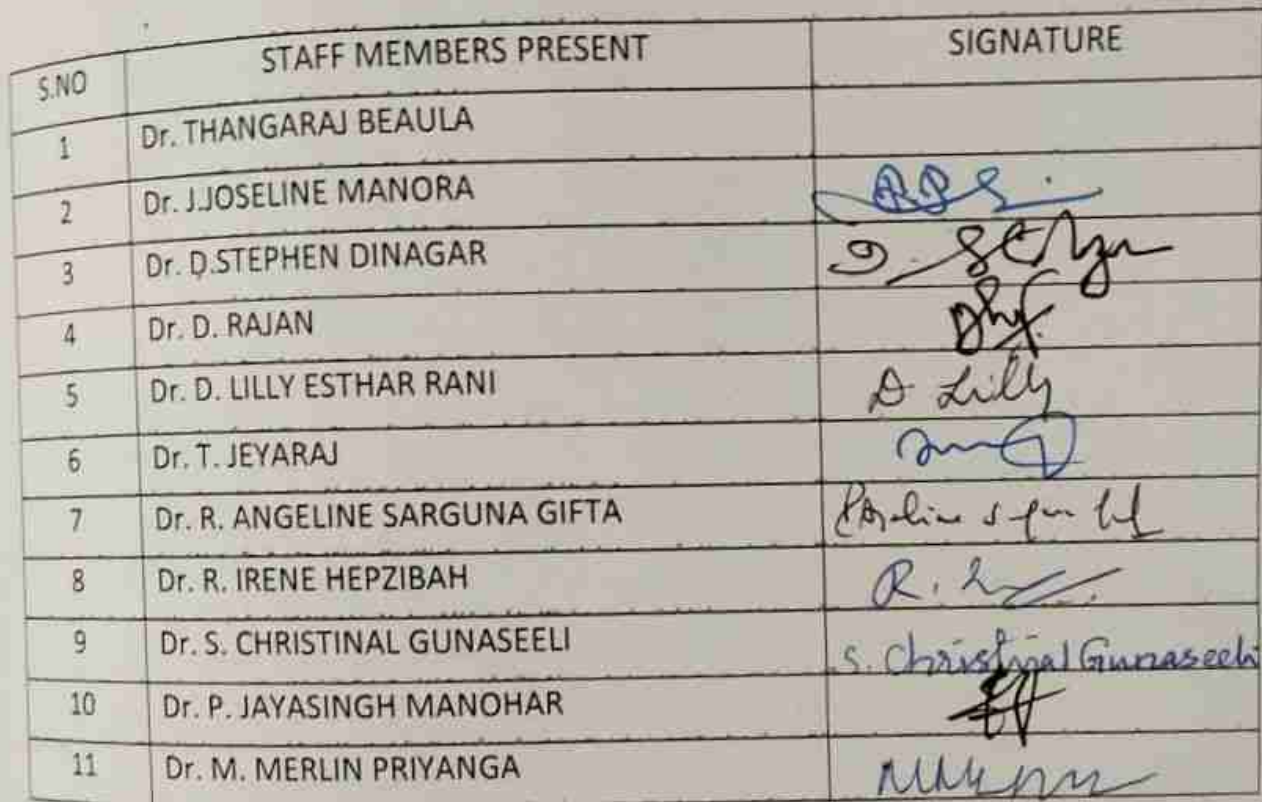 S.NO STAFF MEMBERS PRESENT SIGNATURE
1 Dr. THANGARAJ BEAULA
2 Dr. J.JOSELINE MANORA
3 Dr. D.STEPHEN DINAGAR
4 Dr. D. RAJAN
5 Dr. D. LILLY ESTHAR RANI D Lilly
6 Dr. T. JEYARAJ
7 Dr. R. ANGELINE SARGUNA GIFTA
8 Dr. R. IRENE HEPZIBAH R.
9 Dr. S. CHRISTINAL GUNASEELI S. Christinal Gunaseeli
10 Dr. P. JAYASINGH MANOHAR
11 Dr. M. MERLIN PRIYANGA